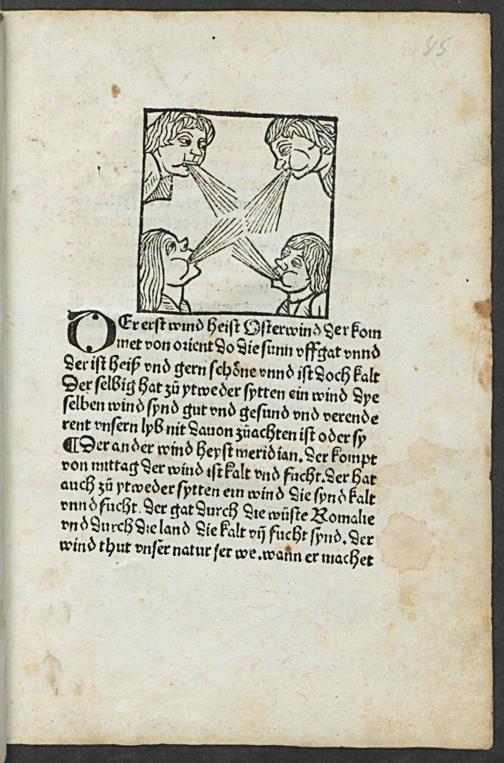 85
DEr erst wind heist Osterwind der kom
met von orient do die sunn vffgat vnnd
der ist heiß vnd gern schöne vnnd ist doch kalt
Der selbig hat zů ytweder sytten ein wind dye
selben wind synd gut vnd gesund vnd verende
rent vnsern lyb nit dauon zůachten ist oder sy
¶ Der ander wind heyst meridian. der kompt
von mittag der wind ist kalt vnd fücht. der hat
auch zů ytweder sytten ein wind die synd kalt
vnnd fücht. der gat durch die wüste Romalie
vnd durch die land die kalt vñ fücht synd. der
wind thut vnser natur ser we. wann er machet